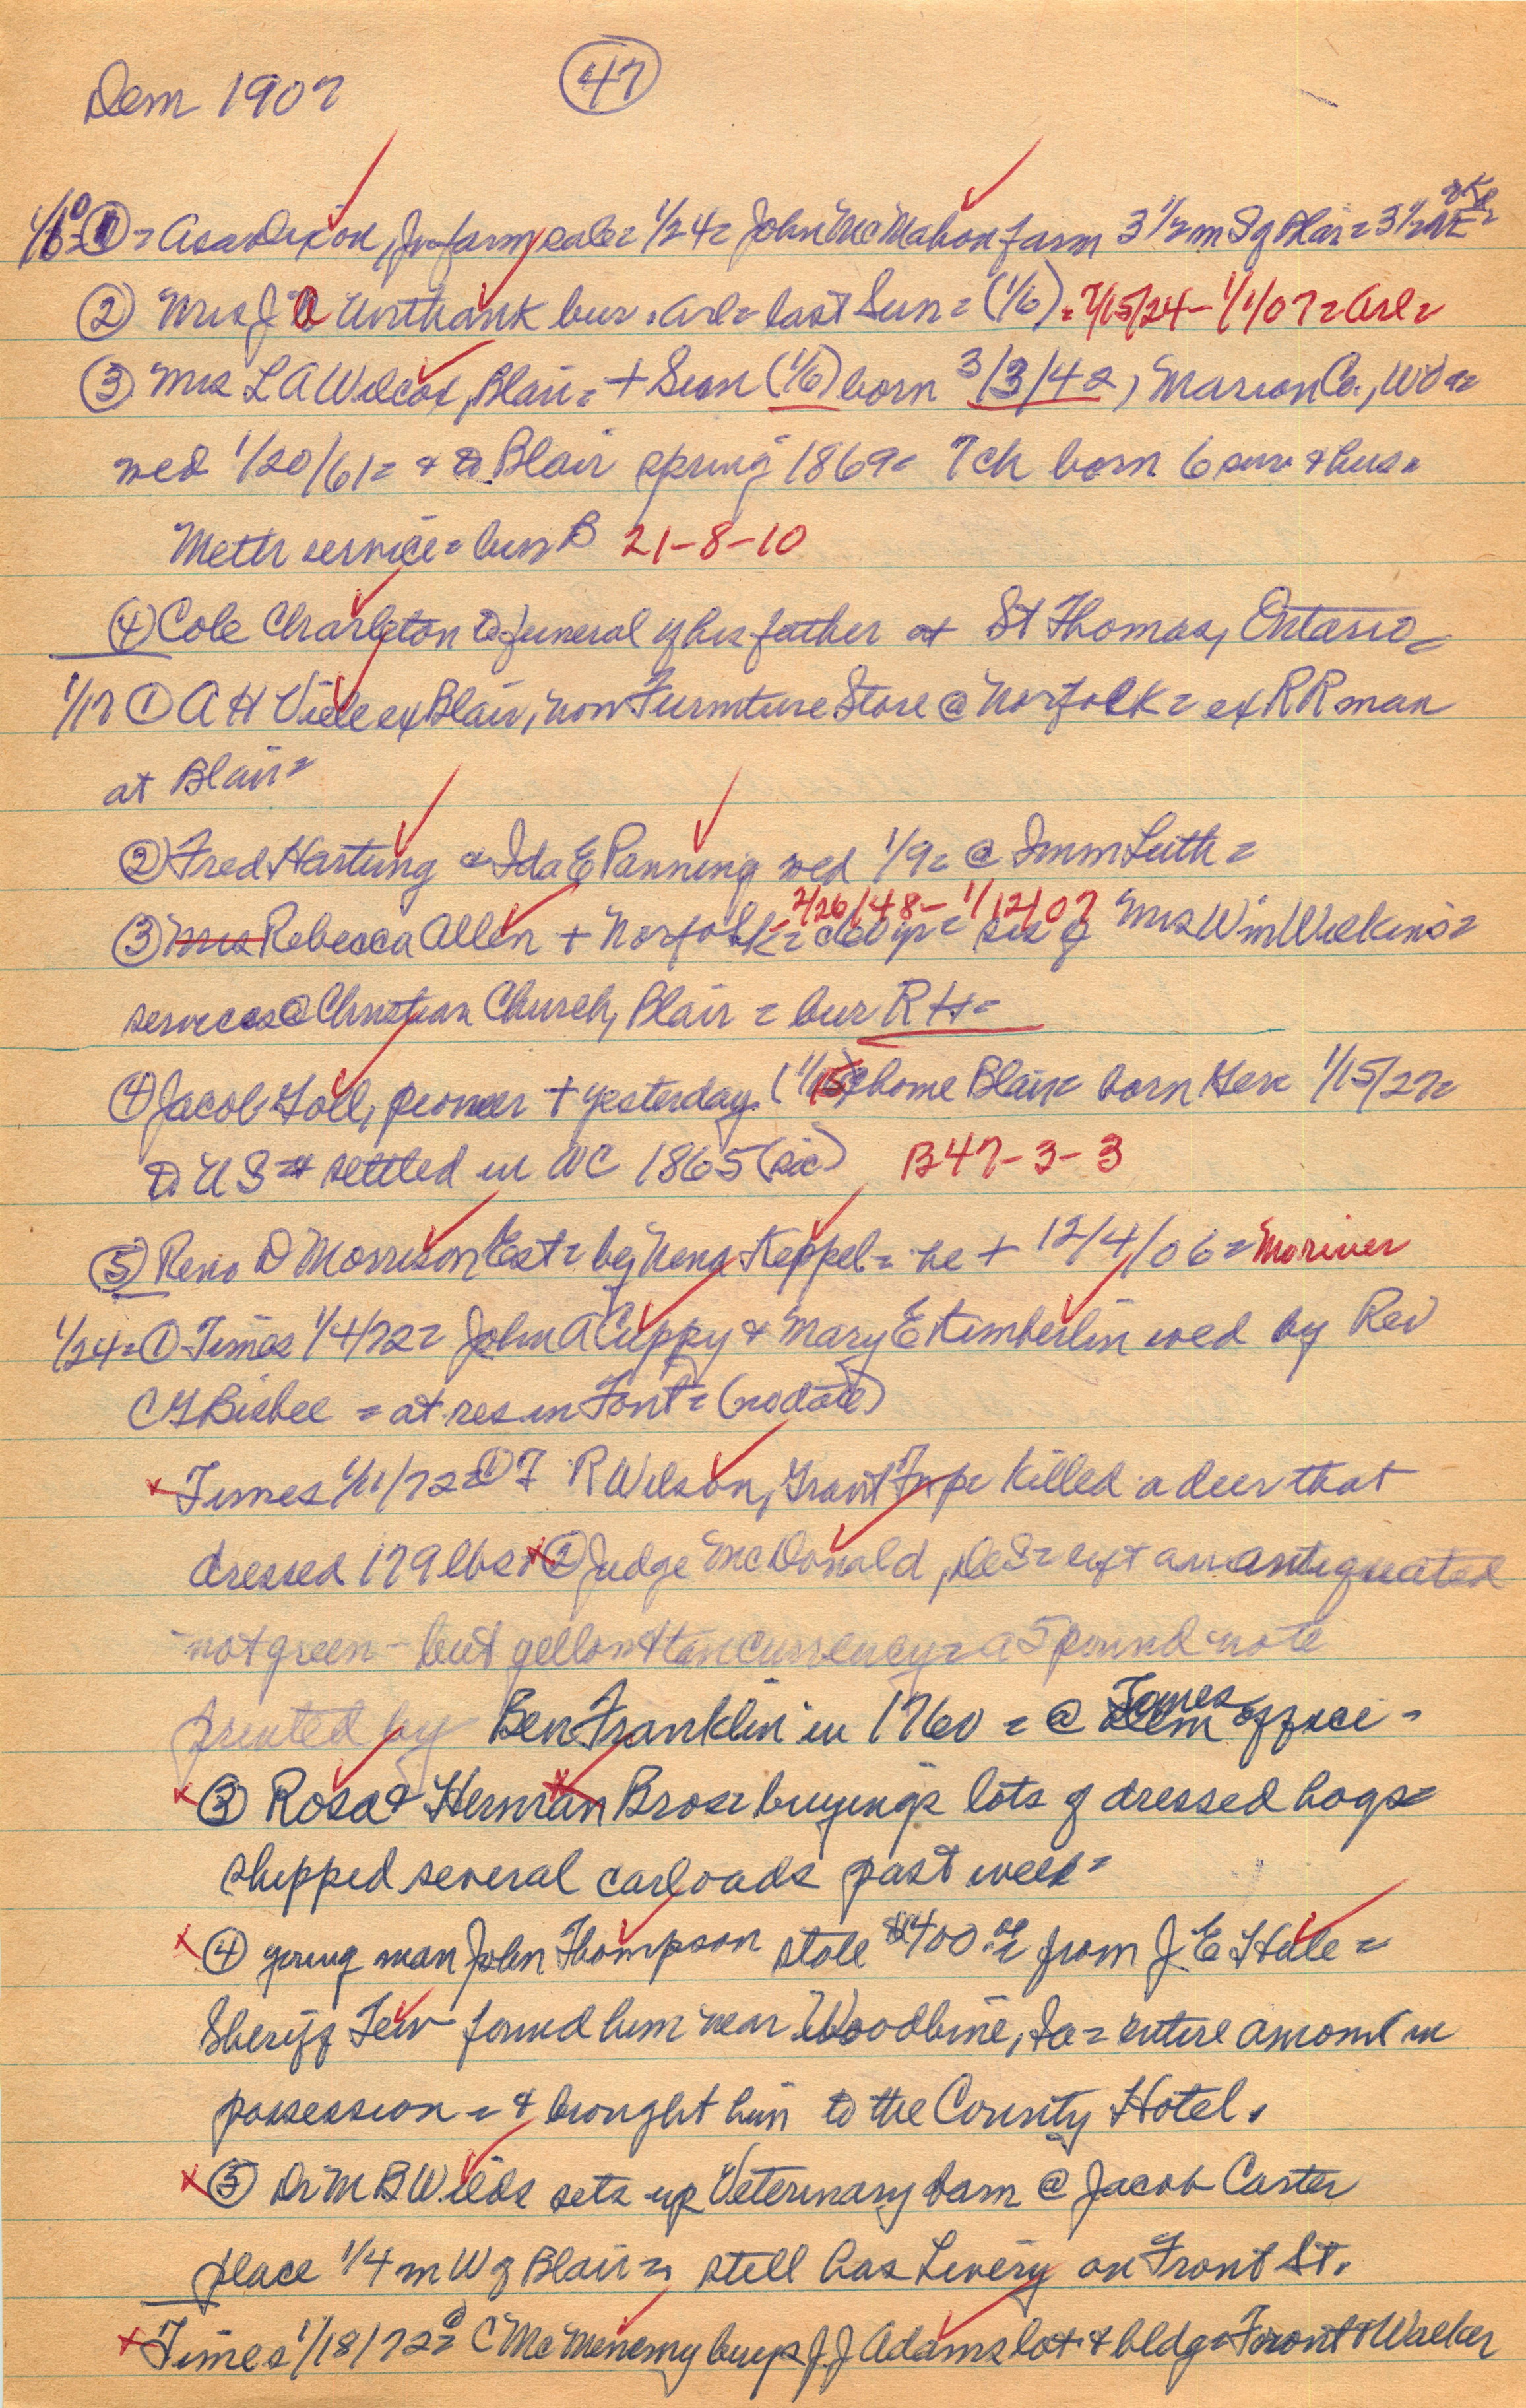 Dem 1907 (47)
1/10 ① = Asa Dixon, Jr farm sale = 1/24 = John McMahon farm 3 1/2 m S of Blair = 3 1/2
② Mrs J A Unthank bur. Arl = last Sun = (1/6) = 7/15/24 - 1/1/07 = Arl =
③ Mrs L A Wilcox, Blair = + Sun (1/6) born 3/3/42, Marion Co.,
wed 1/20/61 = & to Blair spring 1869 = 7 ch born 6 surv & hus =
Meth service = bur B 21-8-10
④ Cole Charlton to funeral of his father at St Thomas, Ontario =
1/17 ① A H Viele ex Blair, now Furniture Store @ Norfolk = ex RR man
at Blair =
② Fred Hartung & Ida E Panning wed 1/9 = @ Imm Luth =
2/26/48 - 1/12/07
③ Mrs Rebecca Allen + Norfolk = sis of Mrs Wm Wilkins =
services @ Christian Church, Blair = bur R H =
④ Jacob Goll, pioneer + yesterday (1/15) @ home Blair = born Ger 1/15/27 =
to US = & settled in WC 1865 (sic) B47-3-3
⑤ Reno D Morrison Est = by Nena Keppel = he + 12/4/06 = Mo river
1/24 = ① Times 1/4/72 = John A Cuppy & Mary E Kimberlin wed by Rev
C G Bisbee = at res in Font = (no date)
x Times 1/11/72 = ① F R Wilson, Grant Twp killed a deer that
dressed 179 lbs = x ② Judge McDonald, DeS = left an antiquated
not green - but yellow & tan currency = a 5 pound note
printed by Ben Franklin in 1760 = @ Times office -
x ③ Rosa & Herman Bros = buying lots of dressed hogs =
shipped several carloads past week =
x ④ young man John Thompson stole $400.00 from J. E Hille =
Sheriff Tew found him near Woodbine, Ia = entire amount in
possession = & brought him to the County Hotel.
x ⑤ Dr M B Wilds sets up Veterinary barn @ Jacob Carter
place 1/4 m W of Blair = still has Livery on Front St.
x Times 1/18/72 = ① C McMenemy buys J J Adams lot & bldg = Front & Walker